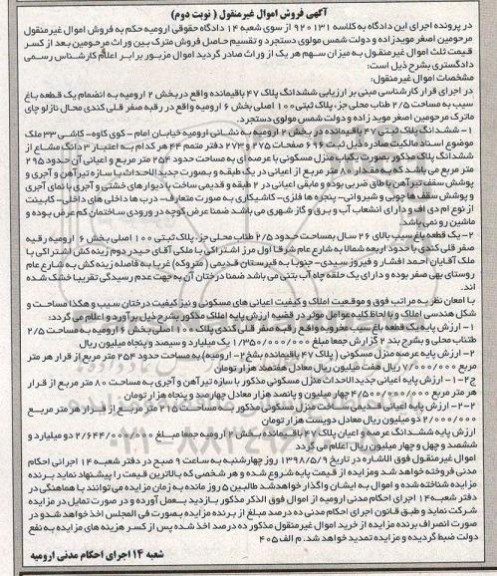 آگهی فروش اموال غیرمنقول ( نوبت دوم)
در پرونده اجرای این دادگاه به کلاسه ۹۲۰۱۳۱ از سوی شعبه ۱۴ دادگاه حقوقی ارومیه حکم به فروش اموال غیرمنقول
مرحومین اصغر مویدزاده و دولت شمس مولوی دستجرد و تقسیم حاصل فروش مترک بین وراث مرحومین بعد از کسر
قیمت ثلث اموال غیرمنقول به میزان سهم هر یک از وراث صادر گردید اموال مزبور برابر اعلام کارشناس رسمی
دادگستری بشرح ذیل است:
مشخصات اموال غیرمنقول:
در اجرای قرار کارشناسی مبنی بر ارزیابی ششدانگ پلاک ۴۷ باقیمانده واقع دربخش ۲ ارومیه به انضمام یک قطعه باغ
سیب به مساحت ۲/۵ طناب محلی جز، پلاک ثبتی ۱۰۰ اصلی بخش ۶ ارومیه واقع در رقبه صفر قلی کندی محال نازلو چای
ماترک مرحومین اصغر موید زاده و دولت شمس مولوی دستجرد.
۱- ششدانگ پلاک ثبتی ۴۷ باقیمانده در بخش ۲ ارومیه به نشانی ارومیه خیابان امام - کوی کاوه- کاشی ۳۳ ملک
موضوع اسناد مالکیت صادره ذیل ثبت ۶۹۶ صفحات ۲۷۵ و ۲۷۳ دفتر متمم ۴۴ هر کدام به اعتبار ۳ دانگ مشاع از
ششدانگ پلاک مذکور بصورت یکباب منزل مسکونی با عرصه ای به مساحت حدود ۲۵۴ متر مربع و اعیانی آن حدود ۲۹۵
متر مربع می باشد که به مقدار ۸۰ متر مربع از اعیانی در یک طبقه و بصورت جدید الاحداث با سازه تیرآهن و آجری و
پوشش سقف تیرآهن با طاق ضربی بوده و مابقی اعیانی در ۲ طبقه و قدیمی ساخت با دیوارهای خشتی و آجری با نمای آجری
و پوشش سقف ها چوبی و شیروانی- پنجره ها فلزی- کاشیکاری به صورت متعارف- درب ها داخلی های داخلی- کابینت
از نوع ام دی اف و دارای انشعاب آب و برق و گاز شهری می باشد ضمنا عرض کوچه در ورودی ساختمان کم عرض بوده و
ماشین رو نمی باشد.
۲- یک قطعه باغ سیب بالای ۲۶ سال بمساحت حدود ۲/۵ طناب محلی جز، پلاک ثبتی ۱۰۰ اصلی بخش ۶ ارومیه رقبه
صفر قلی کندی با حدود اربعه شمالا به شارع عام شرقا اول مرز اشتراکی با ملکی آقای حیدر دوم زینه کش اشتراکی با
ملک آقایان احمد افشار و فیروز سیدی- جنوبا به قبرستان قدیمی ( متروکه) غربا به فاصله زینه کش به شارع عام
روستای بهی صفر بوده و دارای یک حلقه چاه آب بتنی می باشد ضمنا درختان آن به جهت عدم رسیدگی تقریبا خشک شده
اند.
با امعان نظر به مراتب فوق و موقعیت املاک و کیفیت اعیانی های مسکونی و نیز کیفیت درختان سیب و هکذا مساحت و
شکل هندسی املاک و با لحاظ کلیه عوامل موثر در قضیه ارزش پایه املاک مذکور بشرح ذیل برآورد و اعلام می گردد:
۱- ارزش پایه یک قطعه باغ سیب مخروبه واقع رقبه صفر قلی کندی پلاک ۱۰۰ اصلی بخش ۶ ارومیه به مساحت ۲/۵
طناب محلی و بشرح بند ۲ گزارش جمعا مبلغ ۱/۳۵۰/۰۰۰/۰۰۰ یک میلیارد و سیصد و پنجاه میلیون ریال
۲- ارزش پایه عرصه منزل مسکونی ( پلاک ۴۷ باقیمانده بشخ ۲- ارومیه) به مساحت حدود ۲۵۴ متر مربع از قرار هر متر
مربع ۷/۰۰۰/۰۰۰ ریال هفت میلیون ریال معادل هفتصد هزار تومان
ج۲-۱- ارزش پایه اعیانی جدیدالاحداث منزل مسکونی مذکور با سازه تیر آهن و آجری به مساحت ۸۰ متر مربع از قرار
هر متر مربع ۴/۵۰۰/۰۰۰ چهار میلیون و پانصد هزار معادل چهارصد و پنجاه هزار تومان
۲-۲- ارزش پایه اعیانی قدیمی ساخت منزل مسکونی مذکور به مساحت ۲۱۵ متر مربع از قرار هر متر مربع
۲/۰۰۰/۰۰۰ دو میلیون معادل دویست هزار تومان
ارزش پایه ششدانگ عرصه و اعیان پلاک ۴۷ باقیمانده بخش ۲ ارومیه جمعا مبلغ ۲/۶۴۴/۰۰۰/۰۰۰ دو میلیارد و
ششصد و چهل و چهار میلیون ریال اعلام می گردد
اموال غیرمنقول فوق الاشاره در تاریخ ۱۳۹۸/۵/۹ روز چهارشنبه به ساعت ۹ صبح در دفتر شعبه ۱۴ اجرائی احکام
مدنی فروخته خواهد شد ومزایده از قیمت پایه شروع شده و هر شخصی که بالاترین قیمت را پیشنهاد نماید برنده
مزایده شناخته شده و اموال به ایشان واگذار خواهدشد طالبین ۵ روز مانده به زمان مزایده می توانند با هماهنگی در
دفتر شعبه ۱۴ اجرای احکام مدنی ارومیه از اموال فوق الذکر مذکور بازدید بعمل آورده و در صورت تمایل در مزایده
شرکت نماید و طبق قانون اجرای احکام مدنی ده درصد مبلغ از برنده مزایده بصورت فی المجلس اخذ خواهد شدو در
صورت انصراف برنده مزایده از خرید اموال غیرمنقول مذکور ده درصد اخذ شده پس از کسر هزینه های مزایده به نفع
دولت ضبط گردیده و مزایده تمدید خواهد شد. م الف ۴۰۵
شعبه ۱۴ اجرای احکام مدنی ارومیه